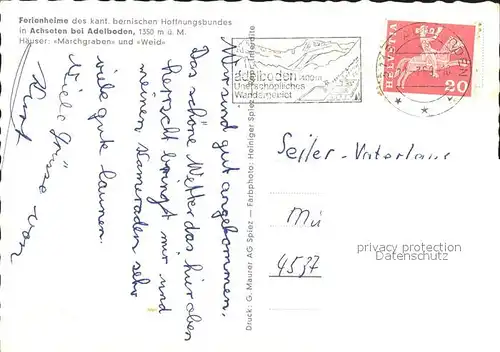 Ferienheime des kant. bernischen Hoffnungsbundes
in Achseten bei Adelboden, 1350 m ü. M.
Häuser: «Marchgraben» und «Weid»
Wir sind gut angekommen.
Das schöne Wetter das hier oben
herrscht bringt mir und
meinen Kameraden sehr
viele gute launen.
Viele Grüsse von
Druck: G. Maurer AG Spiez — Farbphoto: Heiniger Spiez
adelboden 1400m
Unerschöpfliches
Wandergebiet
HELVETIA
20
Seiler-Vaterlaus
Mü
4537
privacy protection
Datenschutz